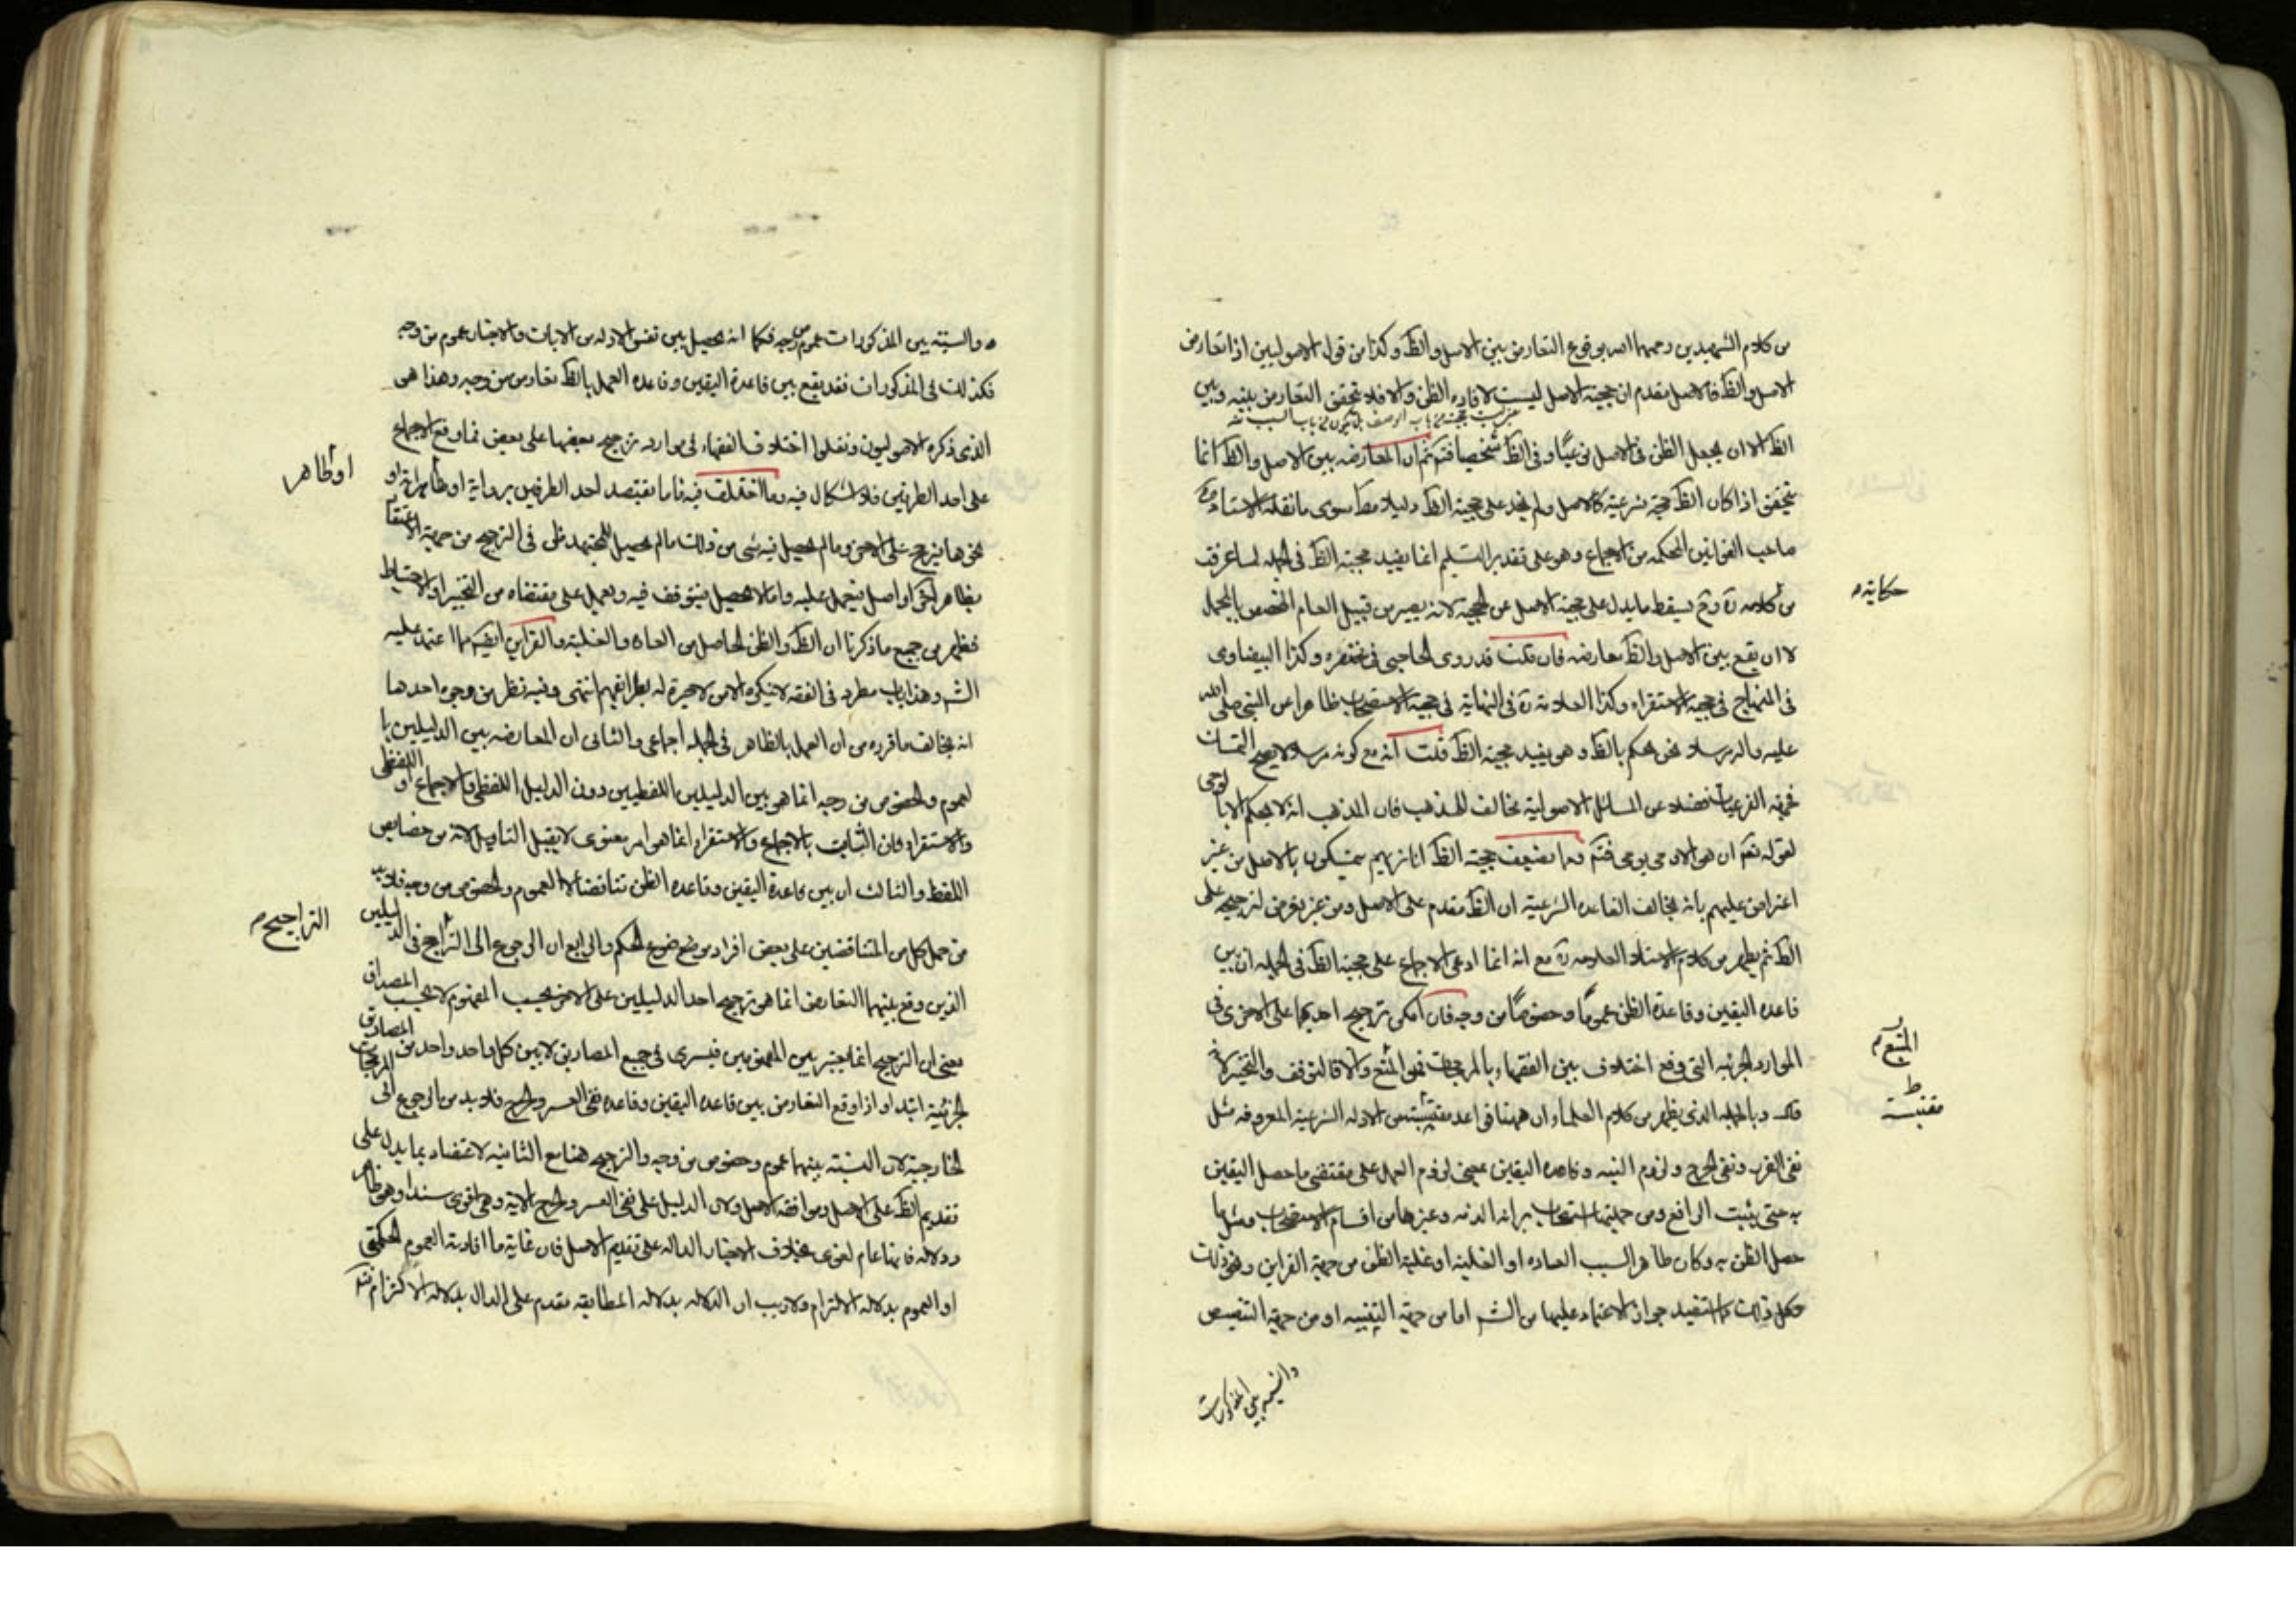 من كلام الشهيدين رحمهما الله بوقوع التعارض بين الاصل والظ وكذا من قول الاصوليين اذا تعارض
الاصل والظ فالاصل مقدم ان حجية الاصل ليست لافادة الظن والا فلا يتحقق التعارض بينه وبين
الظ الا ان يجعل الظن فى الاصل نوعيًا وفى الظ شخصيا فتم ثم ان المعارضه بين الاصل والظ انما
يتحقق اذا كان الظ حجية شرعية كالاصل ولم نجد على حجية الظ دليلا مط سوى ما نقله الاستاد
صاحب القوانين المحكمه من الاجماع وهو على تقدير التسليم انما يفيد حجية الظ فى الجمله لما عرفت
حكايته
من كلامه ره وثم يسقط ما يدل على حجية الاصل عن الحجية لانه يصير من قبيل العام المخصص بالمجمل
لا ان يقع بين الاصل والظ معارضه فان قلت قد روى الحاجبى فى مختصره وكذا البيضاوى
فى المنهاج فى حجية الاستقراء وكذا العلامة ره فى النهاية فى حجية الاستصحاب ظاهرا عن النبى صلى الله
عليه واله مرسلا نحن نحكم بالظ وهو يفيد حجية الظ قلت انه مع كونه مرسلا لا يصح التمسك
فى الفرعيات فضلا عن المسائل الاصولية مخالف للمذهب فان المذهب انه لا يحكم الا بالوحى
لقوله تعم ان هو الا وحى يوحى فتم ومما يضعف حجية الظ انا نريهم يتمسكون بالاصل من غير
اعتراض عليهم بانه مخالف القاعده الشرعية ان الظ مقدم على الاصل ومن غير تعرض لترجيحه على
الظ ثم يظهر من كلام الاستاد العلامه ره مع انه انما ادعى الاجماع على حجية الظ فى الجمله ان بين
قاعده اليقين وقاعدة الظن عمومًا وخصوصًا من وجه فان امكن ترجيح احديهما على الاخرى فى
الموارد الجزئيه التى وقع اختلاف بين الفقهاء بالمرجحات فهو المتبع والا فالتوقف والتخير
المتبع
قال وبالجمله الذى يظهر من كلام العلماء ان ههنا قواعد مقتبسة من الادله الشرعية المعروفه مثل
مقتبسة
نفى الضرر ونفى الحرج ولزوم البينه وقاعده اليقين بمعنى لزوم العمل على مقتضى ما حصل اليقين
به حتى يثبت الرافع ومن جملتها استصحاب براءة الذمه وغيرها من اقسام الاستصحاب ومثل ما
حصل الظن به وكان ظاهرا لسبب العاده او الغلبه او غلبة الظن من جهة القراين ونحو ذلك
وكل ذلك ما استفيد جواز الاعتماد عليها من الشر اما من جهة التنبيه او من جهة التنصيص
والنسبة بين المذكورات
والنسبة بين المذكورات عموم من وجه فكما انه يحصل بين نفس الادله من الايات والاخبار عموم من وجه
فكذلك فى المذكورات فقد يقع بين قاعدة اليقين وقاعده العمل بالظ تعارض من وجه وهذا هو
الذى ذكره الاصوليون ونقلوا اختلاف الفقهاء فى موارد ترجيح بعضها على بعض فما وقع الاجماع
على احد الطرفين فلا اشكال فيه وما اختلف فيه فاما يعتضد احد الطرفين برواية او ظاهر اية او
او ظاهر
نحوها فيرجح على الاخر وما لم يحصل فيه شى من ذلك ما لم يحصل للمجتهد ظن فى الترجيح من جهة الاعتضاد
بظاهر اخر او اصل فيعمل عليه واما لا يحصل فيتوقف فيه ويعمل على مقتضاه من التخيير او الاحتياط
فظهر من جميع ما ذكرنا ان الظ والظن الحاصل من العاده والغلبة والقراين ايضا مما اعتمد عليه
الشر وهذا باب مطرد فى الفقه لا ينكره الا من لا خبرة له بطرايقهم انتهى وفيه نظر من وجوه احدها
انه يخالف ما قرره من ان العمل بالظاهر فى الجمله اجماعى والثانى ان المعارضه بين الدليلين با
لعموم والخصوص من وجه انما هو بين الدليلين اللفظيين دون الدليل اللفظى والاجماع او اللفظى
والاستقراء فان الثابت بالاجماع والاستقراء انما هو امر معنوى لا يقبل التاويل لانه من خصايص
اللفظ والثالث ان بين قاعدة اليقين وقاعده الظن تناقضا لا العموم والخصوص من وجه فلا بد
من حمل كل من المتناقضين على بعض افراد موضوع الحكم والرابع ان الرجوع الى التراجح فى الدليلين
التراجيح
الذين وقع بينهما التعارض انما هو ترجيح احد الدليلين على الاخر بحسب المفهوم لا بحسب المصداق
يعنى ان الترجيح انما يعتبر بين المفهومين فيسرى فى جميع المصاديق لا بين كل واحد واحد من المصاديق
الجزئية ابتداء واذا وقع التعارض بين قاعده اليقين وقاعده نفى العسر والحرج فلا بد من الرجوع الى المرجحات
الخارجية لان النسبة بينهما عموم وخصوص من وجه والترجيح هنا مع الثانيه لاعتضاده بما يدل على
تقديم الظ على الاصل وموافقه الاصل ولان الدليل على نفى العسر والحرج الاية وهى اقوى سندا وهو ظاهر
ودلاله فانها عام لغوى بخلاف الاخبار الداله على تقديم الاصل فان غاية ما افادته العموم الحكمتى
او العموم بدلاله الالتزام ولا ريب ان الدلاله بدلاله المطابقه مقدم على الدال بدلاله الالتزام